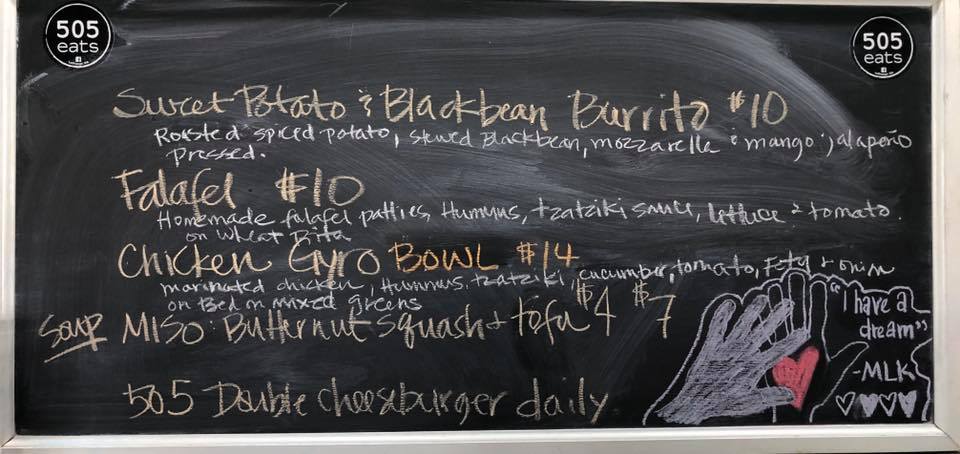 505 eats
505 eats
Sweet Potato & Blackbean Burrito $10
Roasted spiced potato, stewed Blackbean, mozzarella & mango jalapeño
pressed.
Falafel $10
Homemade falafel patties, Hummus, tzatziki sauce, lettuce & tomato.
on wheat Pita
Chicken Gyro BOWL $14
marinated chicken, Hummus, tzatziki, cucumber, tomato, Feta & onion
on Bed on mixed greens
Soup MISO: Butternut squash & tofu $4 $7
"I have a
dream"
-MLK
505 Double cheeseburger daily